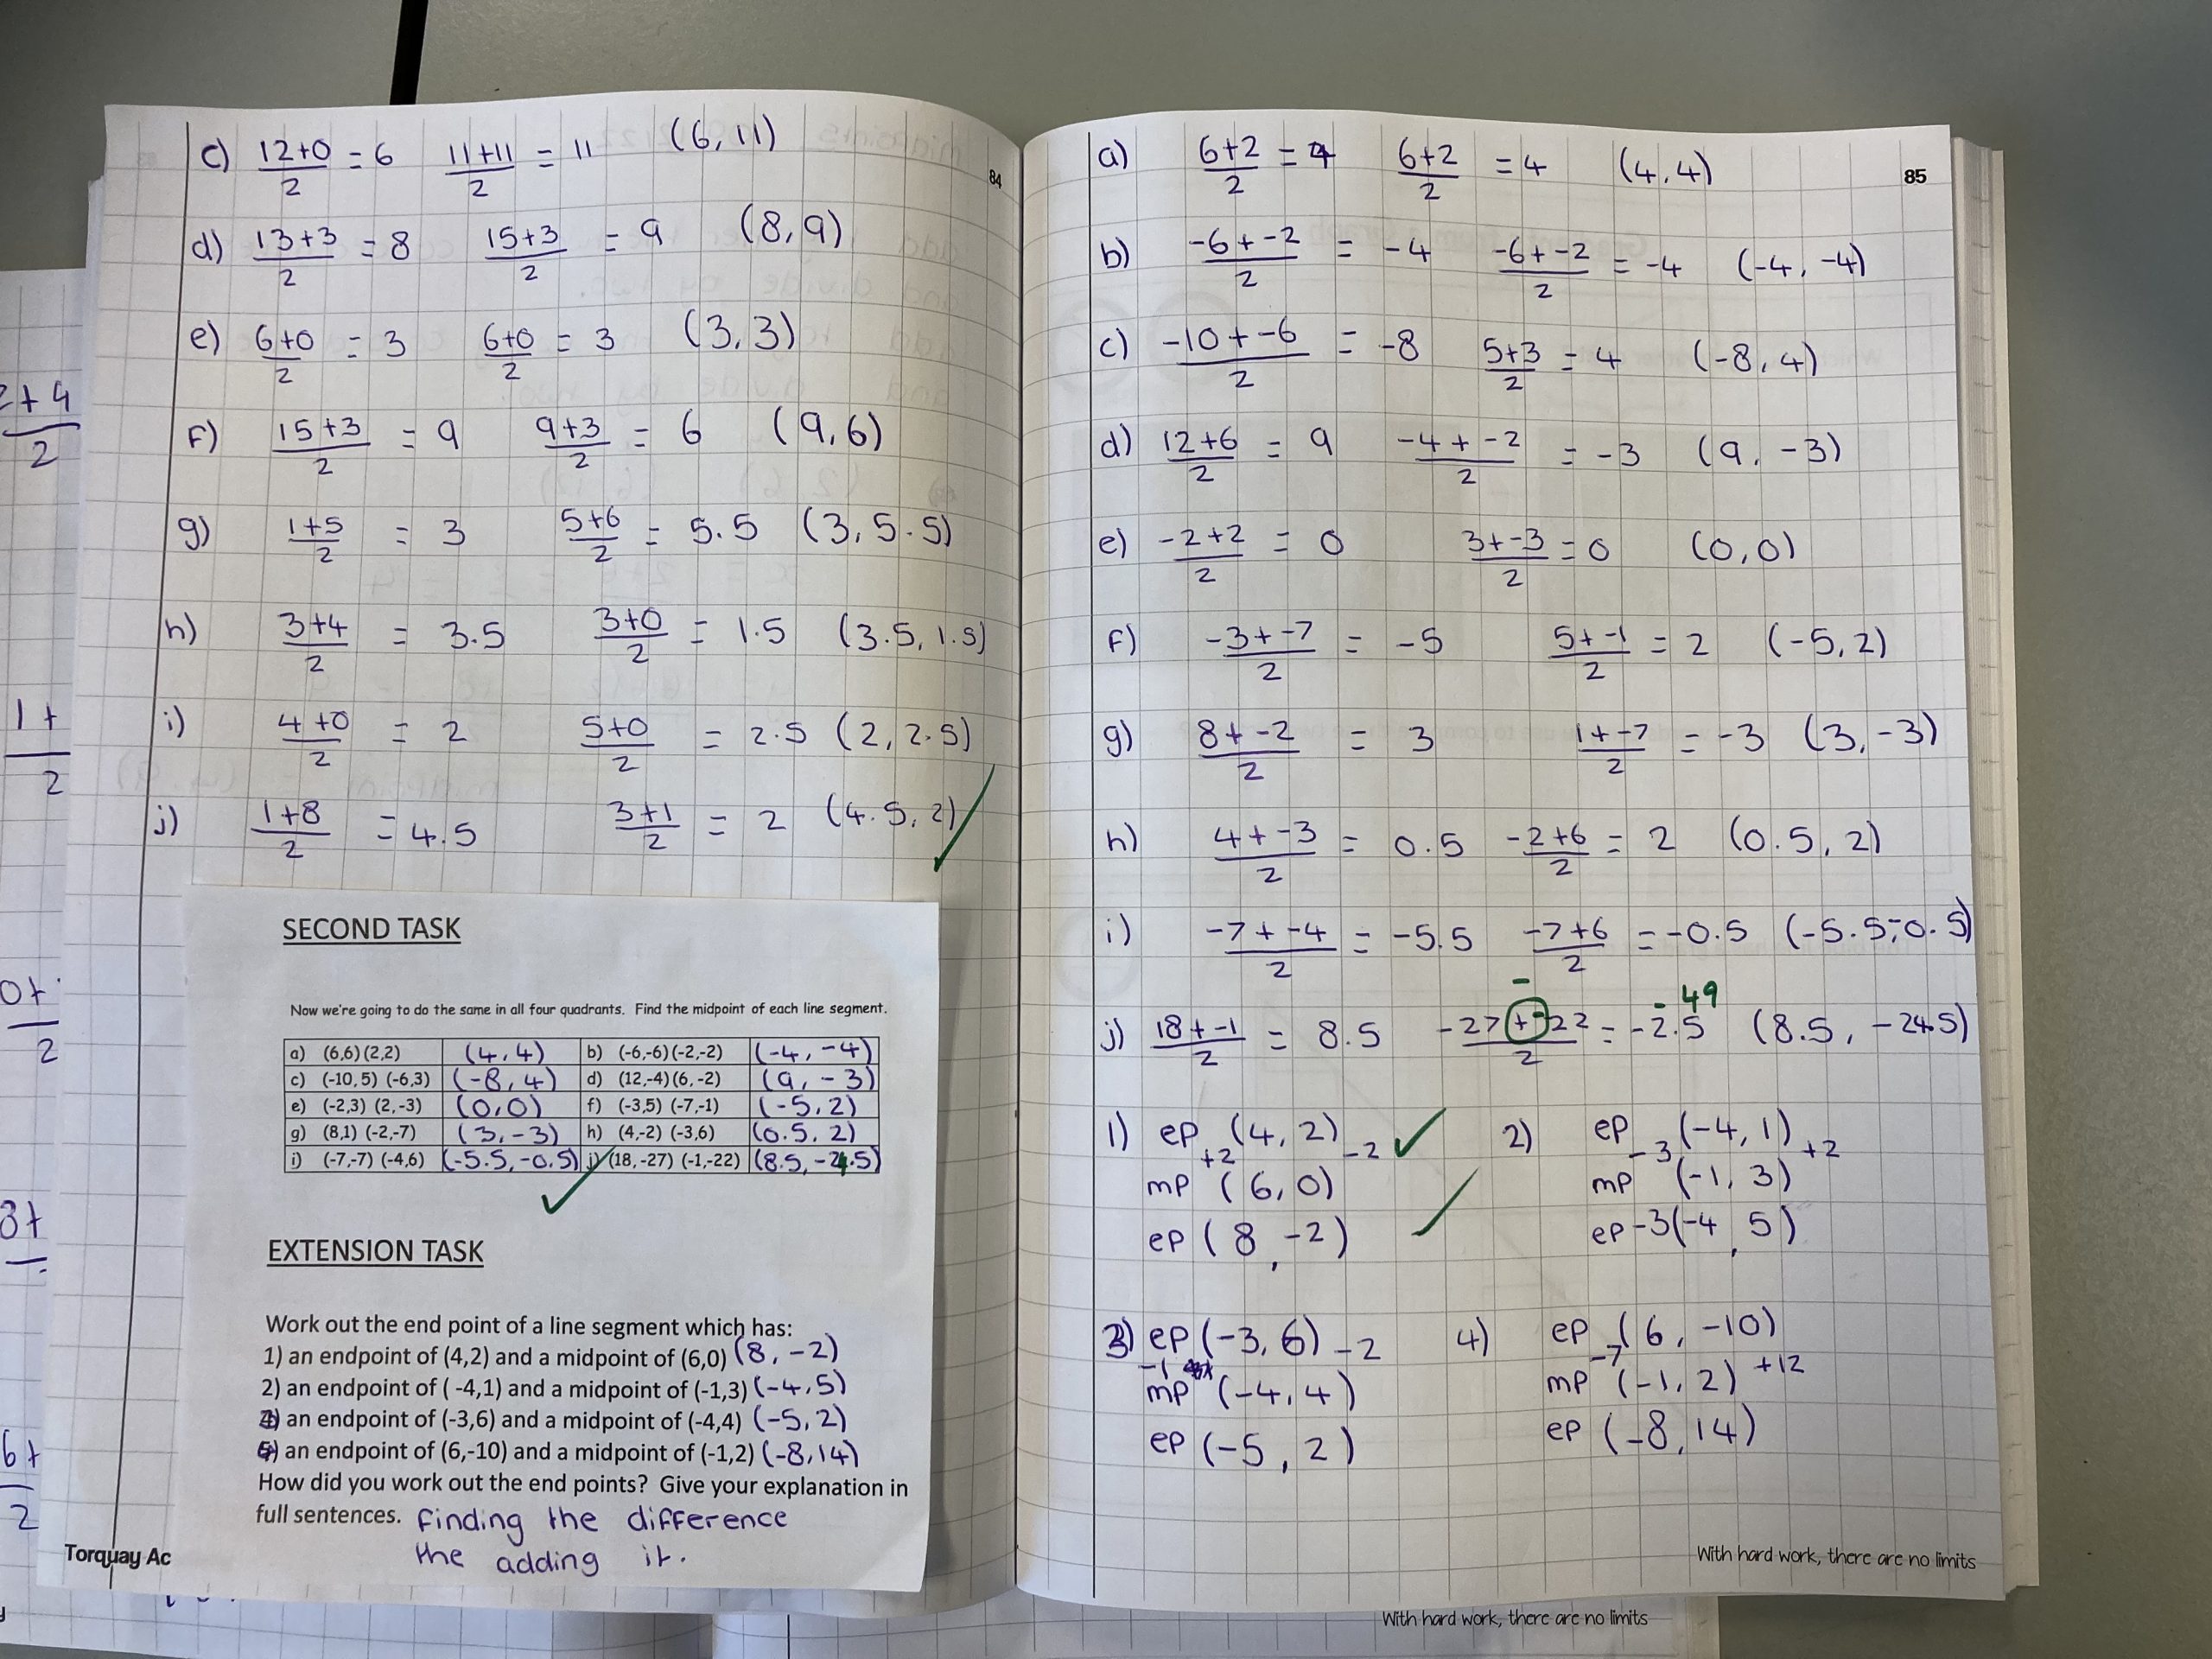 c) 12+0/2 = 6 11+11/2 = 11 (6, 11)
84
d) 13+3/2 = 8 15+3/2 = 9 (8, 9)
e) 6+0/2 = 3 6+0/2 = 3 (3, 3)
f) 15+3/2 = 9 9+3/2 = 6 (9, 6)
g) 1+5/2 = 3 5+6/2 = 5.5 (3, 5.5)
h) 3+4/2 = 3.5 3+0/2 = 1.5 (3.5, 1.5)
i) 4+0/2 = 2 5+0/2 = 2.5 (2, 2.5)
j) 1+8/2 = 4.5 3+1/2 = 2 (4.5, 2)
SECOND TASK
Now we're going to do the same in all four quadrants. Find the midpoint of each line segment.
a) (6,6) (2,2) (4, 4) b) (-6,-6) (-2,-2) (-4, -4)
c) (-10, 5) (-6,3) (-8, 4) d) (12,-4) (6, -2) (9, -3)
e) (-2,3) (2, -3) (0,0) f) (-3,5) (-7,-1) (-5, 2)
g) (8,1) (-2,-7) (3, -3) h) (4,-2) (-3,6) (0.5, 2)
i) (-7,-7) (-4,6) (-5.5, -0.5) j) (18, -27) (-1,-22) (8.5, -24.5)
EXTENSION TASK
Work out the end point of a line segment which has:
1) an endpoint of (4,2) and a midpoint of (6,0) (8, -2)
2) an endpoint of ( -4,1) and a midpoint of (-1,3) (-4, 5)
an endpoint of (-3,6) and a midpoint of (-4,4) (-5, 2)
an endpoint of (6,-10) and a midpoint of (-1,2) (-8, 14)
How did you work out the end points? Give your explanation in
full sentences. finding the difference
the adding it.
Torquay Ac
a) 6+2/2 = 4 6+2/2 = 4 (4, 4)
85
b) -6+-2/2 = -4 -6+-2/2 = -4 (-4, -4)
c) -10+-6/2 = -8 5+3/2 = 4 (-8, 4)
d) 12+6/2 = 9 -4+-2/2 = -3 (9, -3)
e) -2+2/2 = 0 3+-3/2 = 0 (0,0)
f) -3+-7/2 = -5 5+-1/2 = 2 (-5, 2)
g) 8+-2/2 = 3 1+-7/2 = -3 (3, -3)
h) 4+-3/2 = 0.5 -2+6/2 = 2 (0.5, 2)
i) -7+-4/2 = -5.5 -7+6/2 = -0.5 (-5.5, -0.5)
- -49
j) 18+-1/2 = 8.5 -27+-22/2 = -2.5 (8.5, -24.5)
1) ep (4, 2) 2) ep (-4, 1)
+2 -2 -3 +2
mp (6, 0) mp (-1, 3)
ep (8, -2) ep -3(-4, 5)
3) ep (-3, 6) -2 4) ep (6, -10)
-1 -7
mp (-4, 4) mp (-1, 2) +12
ep (-5, 2) ep (-8, 14)
With hard work, there are no limits
With hard work, there are no limits
2+4
2
1+
2
0+
2
3+
6+
2